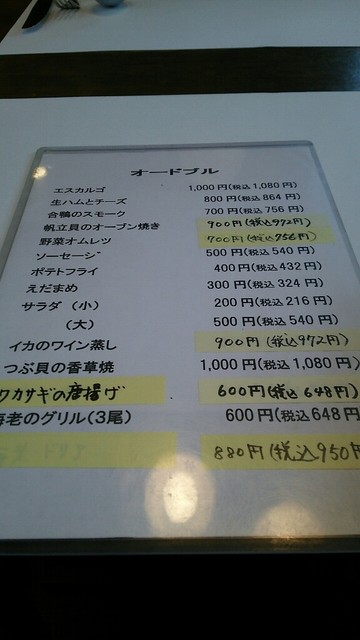 オードブル
エスカルゴ 1,000円(税込1,080円)
生ハムとチーズ 800円(税込864円)
合鴨のスモーク 700円(税込756円)
帆立貝のオーブン焼き 900円(税込972円)
野菜オムレツ 700円(税込756円)
ソーセージ 500円(税込540円)
ポテトフライ 400円(税込432円)
えだまめ 300円(税込324円)
サラダ (小) 200円(税込216円)
(大) 500円(税込540円)
イカのワイン蒸し 900円(税込972円)
つぶ貝の香草焼 1,000円(税込1,080円)
ワカサギの唐揚げ 600円(税込648円)
海老のグリル(3尾) 600円(税込648円
880円(税込950円